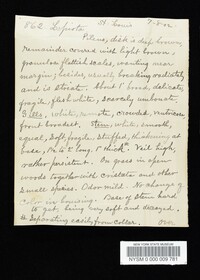 862 Lepiota St. Louis 7-8-02
Pileus, disk is deep brown,
remainder covered with light brown,
granular flattish scales, wanting near
margin; besides, usually breaking radiately
and is striate. About 1" broad, delicate
fragile, flesh white, scarcely umbonate,
Gills, white, remote, crowded, ventricose
front broadest. Stem, white, smooth,
equal, soft, fragile, stuffed, thickening at
base, 1" thick. Veil high,
rather persistent. On grass in open
woods together with cristata and other
small species. Odor mild. No change of
color in bruising. Base of stem hard
to get, being very soft and decayed.
Separating easily from collar. over
NEW YORK STATE MUSEUM
NYSM 0 000 009 781